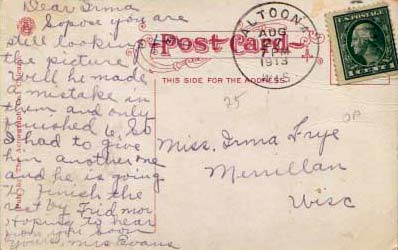 Dear Irma
Sopose you are
still looking for
the picture
Well he made
a mistake in
them and only
finished 6, so
I had to give
him another one
and he is going
to finish the
rest by Frid mor
Hoping to hear
from you soon
Yours, Mrs Evans
Post Card.
THIS SIDE FOR THE ADDRESS
ALTOONA
AUG
1913
WIS.
U.S. POSTAGE
25
Miss. Irma Frye
Merrillan
Wisc